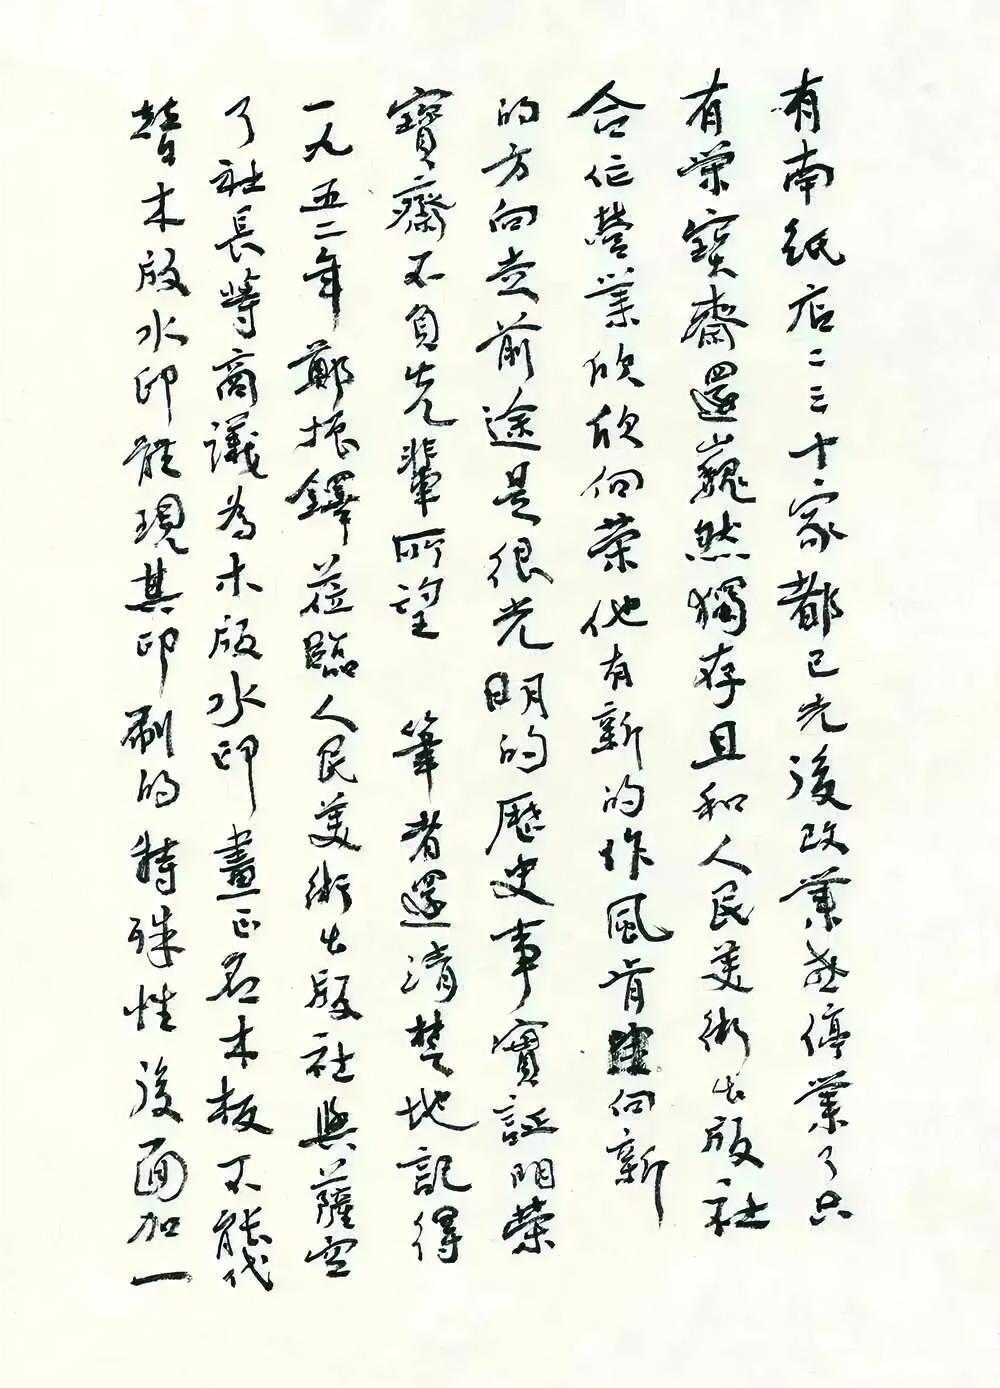 有南纸店二三十家都已先後改業或停業了只
有荣寶齋還巍然獨存且和人民美術出版社
合作營業欣欣向荣他有新的作風肯向新
的方向走前途是很光明的歷史事實証明榮
寶齋不負先輩所望　筆者還清楚地記得
一九五二年鄭振鐸蒞臨人民美術出版社與薩空
了社長等商議為木版水印畫正名木板不能代
替木版水印體現其印刷的特殊性後面加一